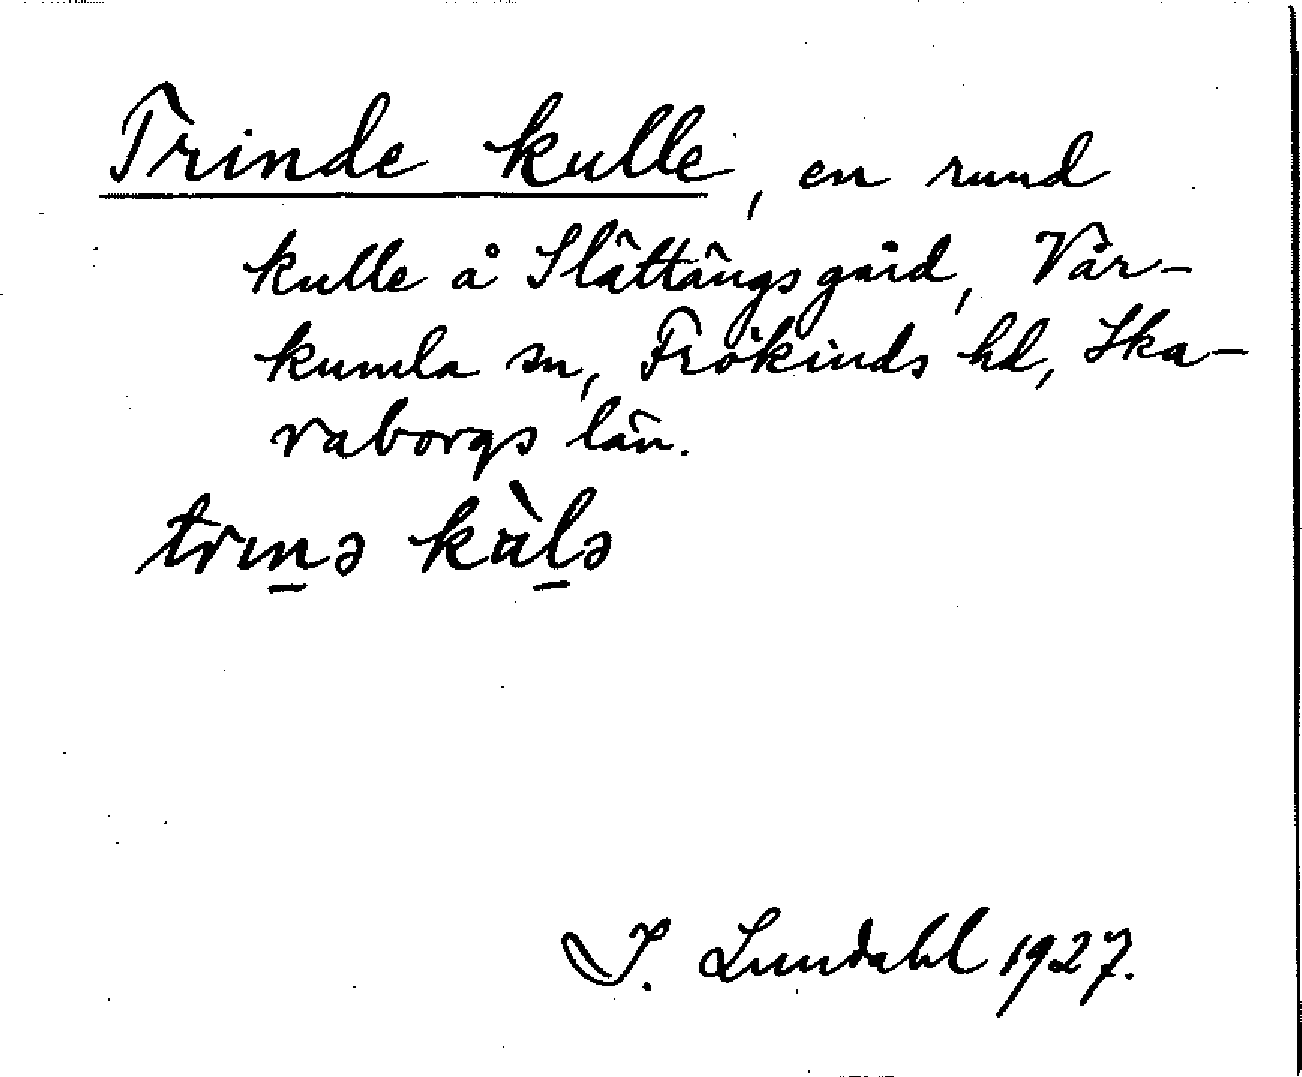 Trinde kulle, en rund
kulle å Slättängsgård, Vår-
kumla sn, Frökinds hd, Ska-
raborgs län.
trın̲ə kàl̲ə
I. Lundahl 1927.